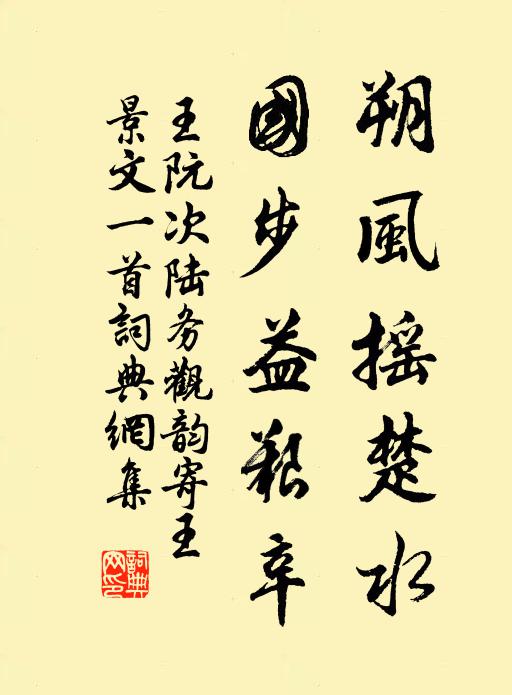 朔風摇楚水
國步益艱辛
王阮次陆务觀韵寄王
景文一首詞典網集
詞典网印